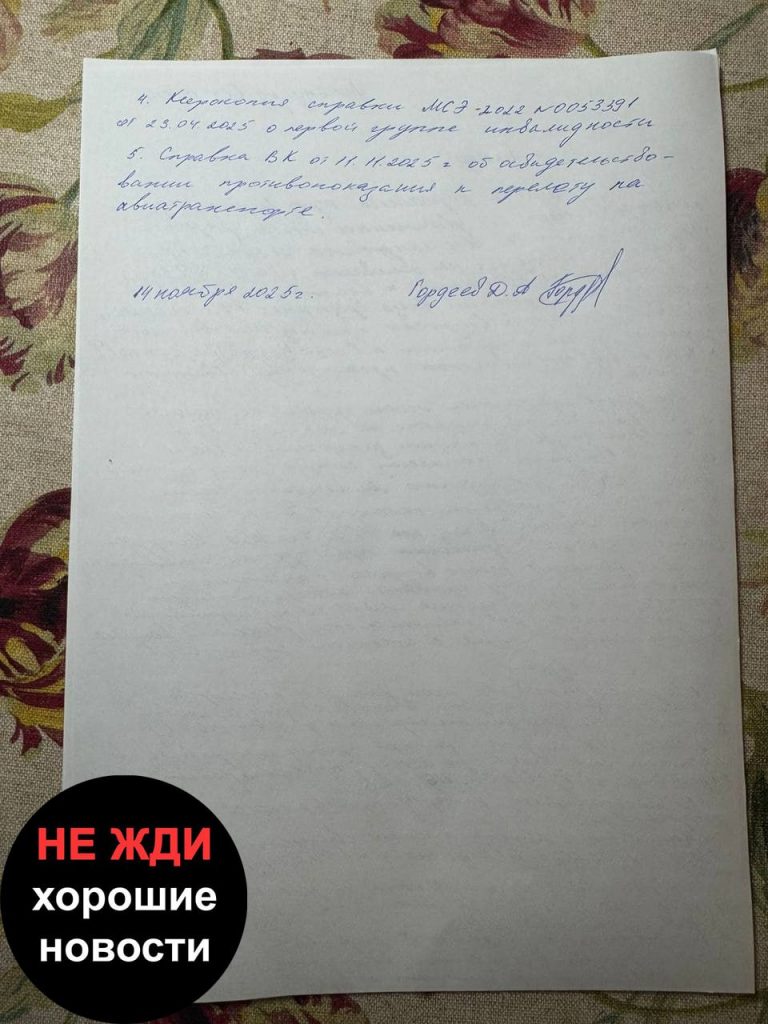 4. Ксерокопия справки МСЭ-2022 №0053391
от 23.04.2025 о первой группе инвалидности
5. Справка ВК от 11.11.2025 г об освидетельство-
вании противопоказания к перелёту на
авиатранспорте.
14 ноября 2025 г. Гордеев Д.А
НЕ ЖДИ
хорошие
новости